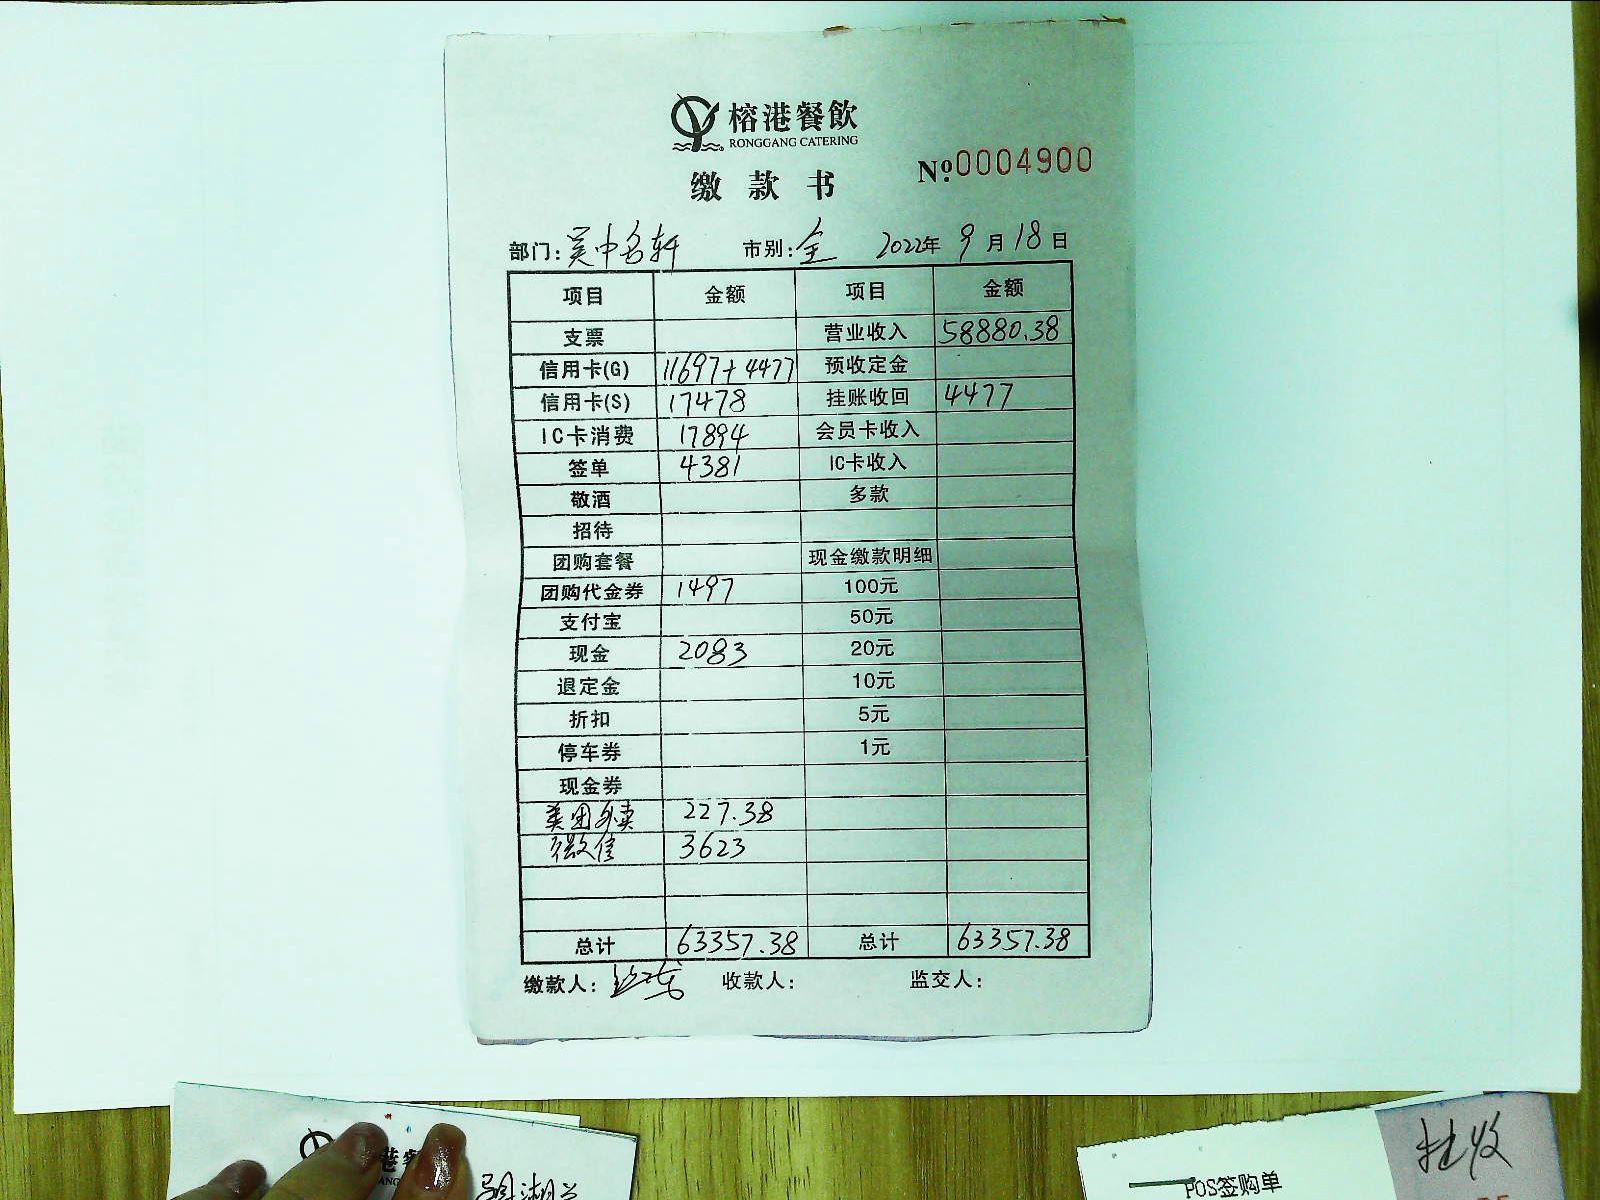 榕港餐飲
RONGGANG CATERING
No.0004900
缴款书
部门: 吴中名轩 市别: 全 2022年 9月18日
项目 金额 项目 金额
支票 营业收入 58880.38
信用卡(G) 11697+4477 预收定金
信用卡(S) 17478 挂账收回 4477
IC卡消费 17894 会员卡收入
签单 4381 IC卡收入
敬酒 多款
招待
团购套餐 现金缴款明细
团购代金券 1497 100元
支付宝 50元
现金 2083 20元
退定金 10元
折扣 5元
停车券 1元
现金券
美团外卖 227.38
微信 3623
总计 63357.38 总计 63357.38
缴款人: 收款人: 监交人:
港餐
ANG
POS签购单